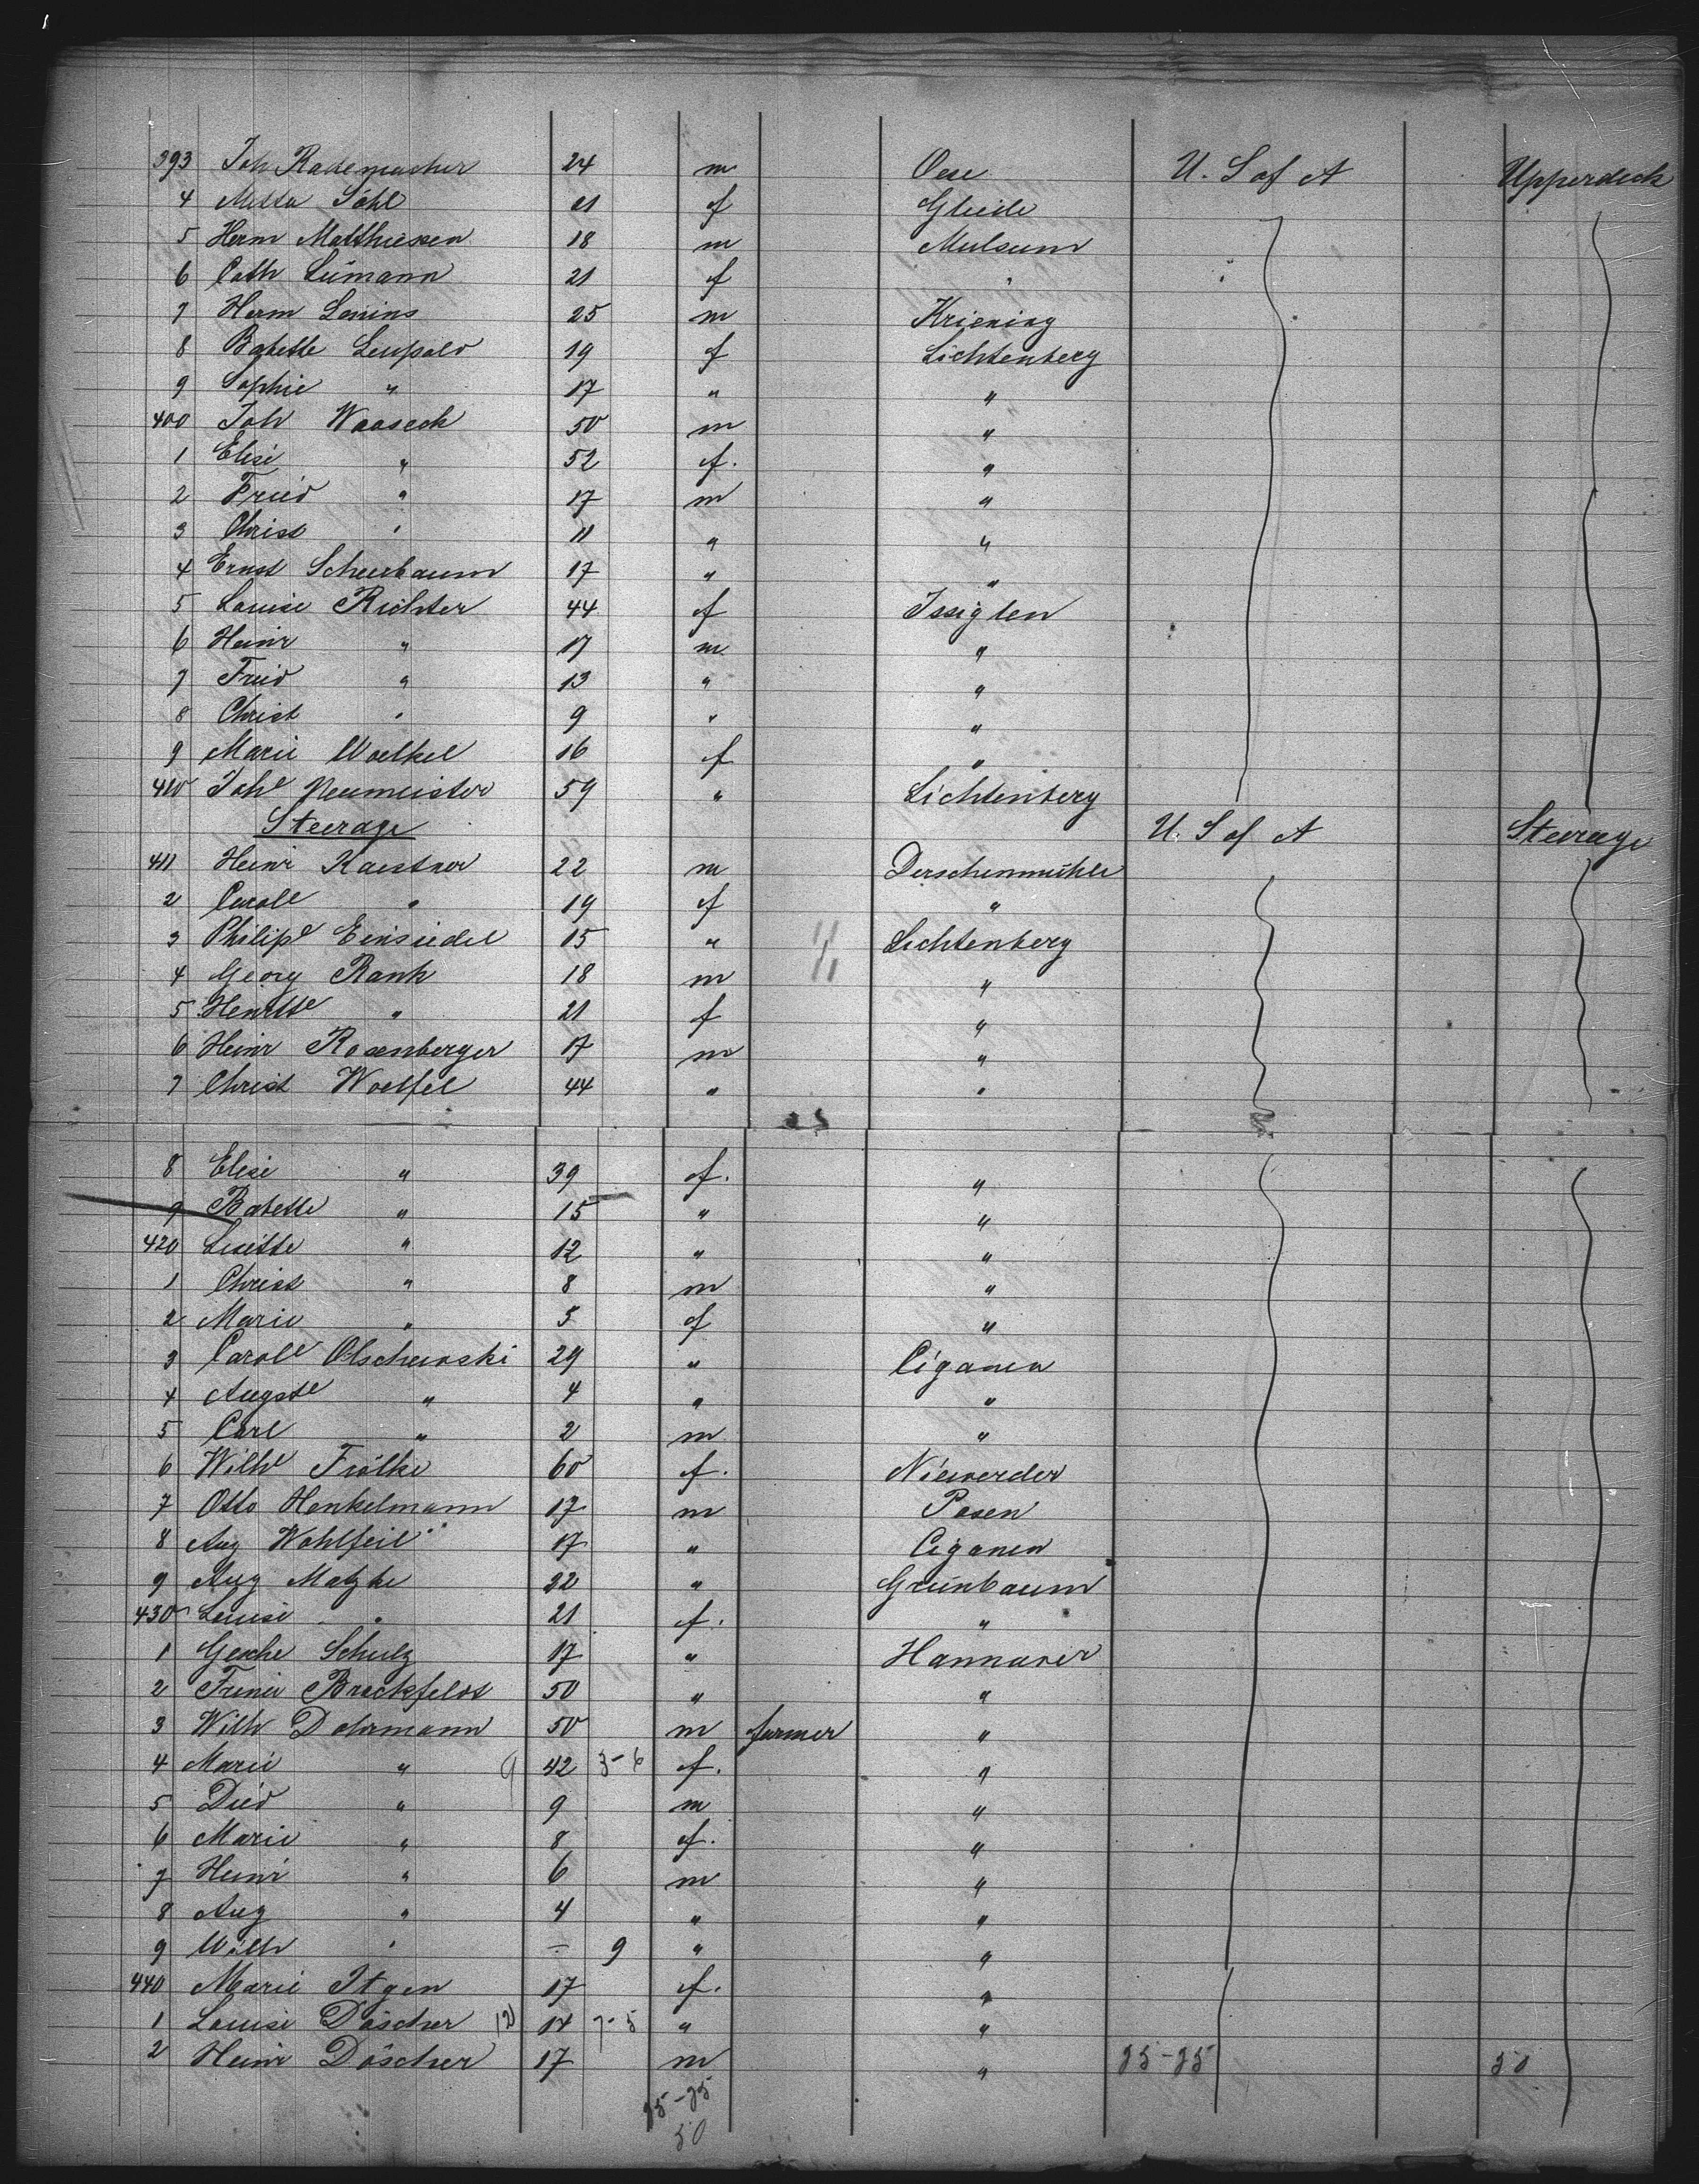 393 Joh Rademacher 24 m Oese U. S of A Upperdeck
4 Metta Söhl 21 f Gleile
5 Herm Matthiessen 18 m Mulsum
6 Cath Lümann 21 f "
7 Herm Lenins 25 m Kriening
8 Babette Leupold 19 f Lichtenberg
9 Sophie " 17 " "
400 Joh Waaseck 50 m "
1 Elise " 52 f. "
2 Fried " 17 m "
3 Christ " 11 " "
4 Ernst Scheerbaum 17 " "
5 Louise Richter 44 f Issigten
6 Heinr " 17 m "
7 Fried " 13 " "
8 Christ " 9 " "
9 Marie Woelkel 16 f "
410 Johe Neumeister 59 " Lichtenberg
Steerage U. S of A Steerage
411 Heinr Kaestner 22 m Derschenmühle
2 Carole " 19 f "
3 Philipe Einsiedel 15 " Lichtenberg
4 Georg Rank 18 m "
5 Henrtte " 21 f "
6 Heinr Rosenberger 17 m "
7 Christ Woelfel 44 " "
8 Elise " 39 f. "
9 Babette " 15 " "
420 Lisette " 12 " "
1 Christ " 8 m "
2 Marie " 5 f "
3 Carole Olschewski 29 " Ciganen
4 Augste " 4 " "
5 Carl " 2 m "
6 Wilhe Frölke 60 f. Niewerder
7 Otto Henkelmann 17 m Posen
8 Aug Wohlfeil 17 " Ciganen
9 Aug Matzke 22 " Grünbaum
430 Louise " 21 f. "
1 Gesche Schulz 17 " Hannover
2 Trine Brockfeldt 50 " "
3 Wilh Dohrmann 50 m farmer "
4 Marie " 9 42 3-6 f. "
5 Died " 9 m "
6 Marie " 8 f. "
7 Heinr " 6 m "
8 Aug " 4 " "
9 Wilh " - 9 " "
440 Marie Itgen 17 f. "
1 Louise Döscher 12 14 7-5 " "
2 Heinr Döscher 17 m " 25-25 50
25-25
50